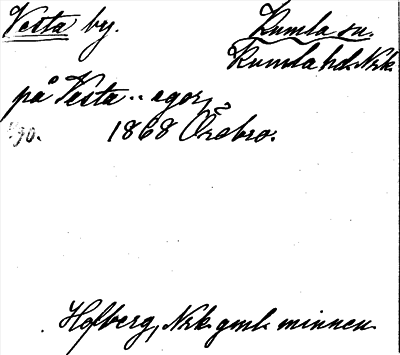 Vesta by. Kumla sn.
Kumla hd. Nrk.
på Vesta .. egor,
190. 1868 Örebro.
Hofberg, Nrk. gml. minnen